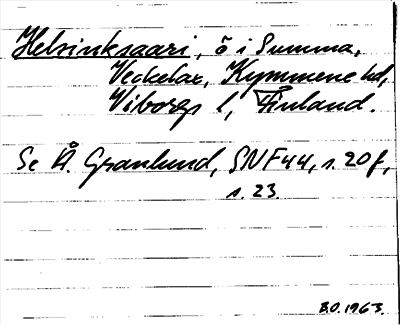 Helsinksaari, ö i Summa,
Veckelax, Kymmene hd,
Viborgs l, Finland.
Se Å. Granlund, SNF 44, s. 20 f,
s. 23.
B.O. 1963.